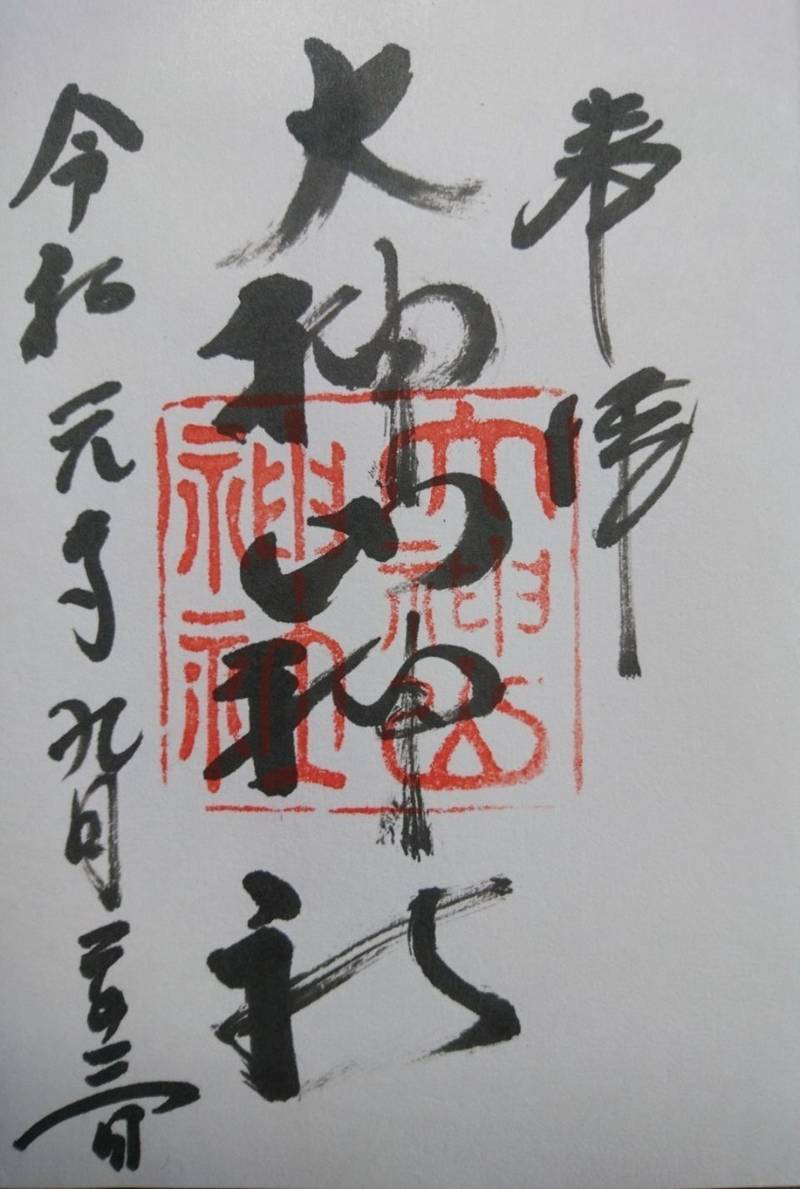 奉拝
大神山神社
大神山
神社
令和元年九月二十三日